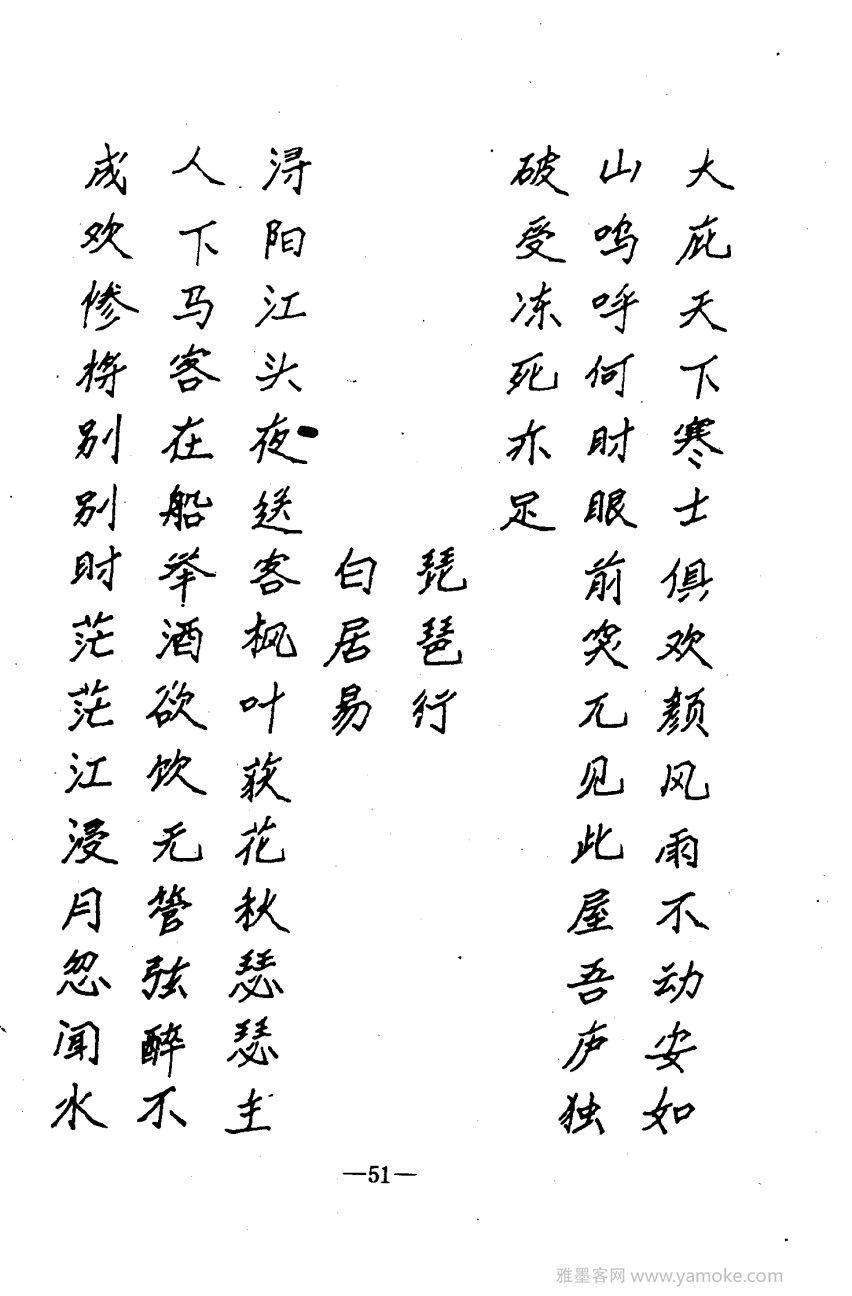 大庇天下寒士俱欢颜风雨不动安如
山呜呼何时眼前突兀见此屋吾庐独
破受冻死亦足
琵琶行
白居易
浔阳江头夜送客枫叶荻花秋瑟瑟主
人下马客在船举酒欲饮无管弦醉不
成欢惨将别别时茫茫江浸月忽闻水
—51—
雅墨客网 www.yamoke.com